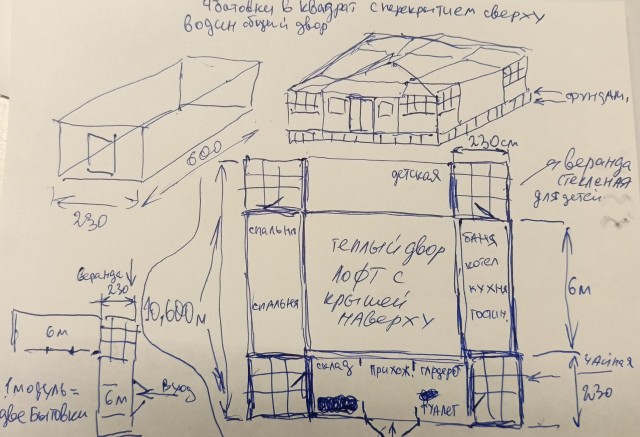 4 бытовки в квадрат с перекрытием сверху
в один общий двор
600
230
фундам.
230см
детская
веранда
стекленая
для детей
спальня
спальня
теплый двор
лофт с
крышей
наверху
баня
котел
кухня
гостин.
6м
10,600м
веранда
230
6м
6м
вход
1 модуль =
две бытовки
склад
прихож.
гардероб
туалет
чайная
230